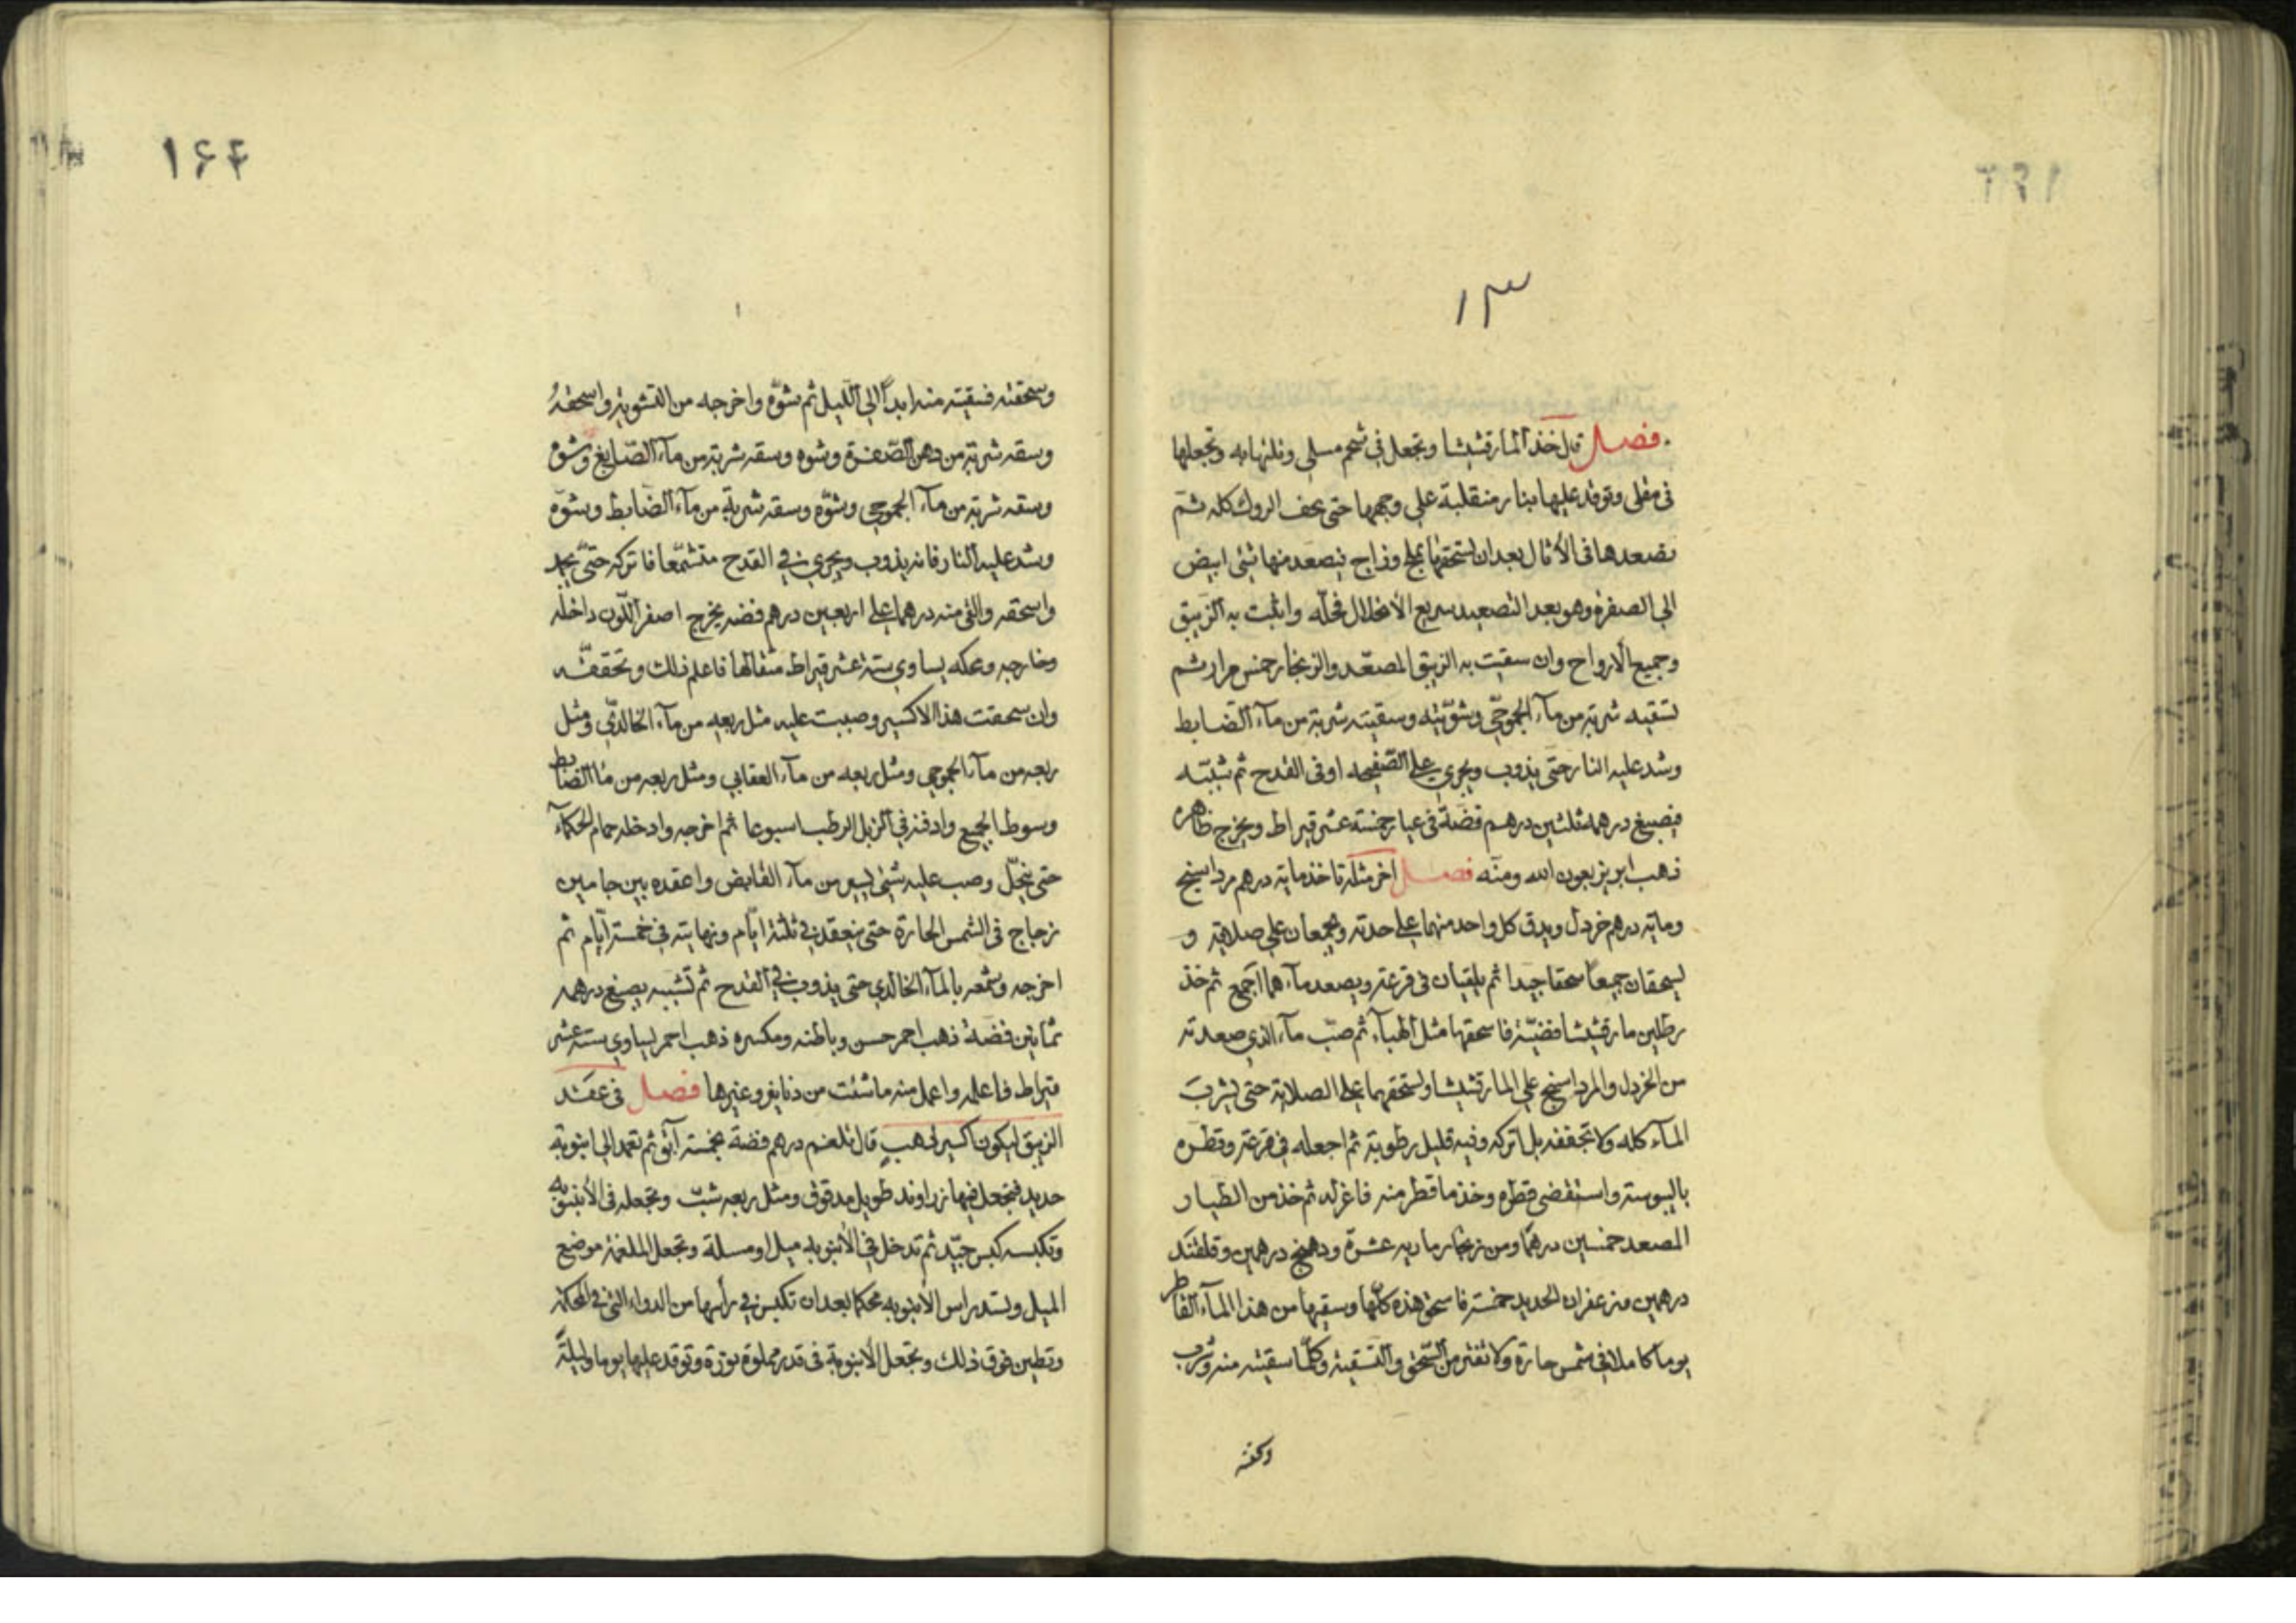 ١٣
فصل قال خذ المارقشيشا وتجعل في شحم مسلي وتلتها به وتجعلها
في مقلى وتوقد عليها بنار منقلبة على وجهها حتى يجف الروث كله ثم
تصعدها في الأثال بعد ان تسحقها بملح وزاج فيصعد منها شئ ابيض
الى الصفرة وهو بعد التصعيد سريع الأنحلال فحله واثبت به الزيبق
وجميع الأرواح وان سقيت به الزيبق المصعّد والزنجار خمس مرار ثم
تسقيه شربة من مآء الجموحي وشوّيته وسقيته شربة من مآء الضابط
وشد عليه النار حتى يذوب ويجري على الصفيحه او في القدح ثم تثبته
فيصبغ درهمه ثلثين درهم فضة في عيار خمسة عشر قيراط ويخرج ظاهره
ذهب ابريز بعون الله ومنّه فصل اخر مثله تاخذ ماية درهم مرداسنج
وماية درهم خردل ويدق كل واحد منهما على حدته ويجمعان على صلاية و
يسحقان جميعا سحقا جيدا ثم يلقيان في قرعة ويصعد مآءهما اجمع ثم خذ
رطلين مارقشيشا فضيّة فاسحقها مثل الهبآء ثم صبّ مآء الذي صعدته
من الخردل والمرداسنج على المارقشيشا وتسحقهما على الصلاية حتى يشرب
المآء كله ولا تجففه بل اتركه وفيه قليل رطوبة ثم اجعله في قرعة وقطره
باليبوسة واستقضي قطره وخذ ما قطر منه فاعزله ثم خذ من الطيار
المصعد خمسين درهما ومن زنجار ماديه عشرة ودهنج درهمين وقلقند
درهمين وزعفران الحديد خمسة فاسحق هذه كلّها وسقيها من هذا المآء القاطر
يوما كاملا في شمس حارة ولا تفتر من السّحق والتسقية وكلّما سقيته منه وشرب
وسحقته فسقيته منه ابداً الى اللّيل ثم شوّه واخرجه من التشوية واسحقهُ
وسقه شربة من دهن الصّفرة وشوه وسقه شربة من مآء الصّابغ وشوّه
وسقه شربة من مآء الجموحي وشوّه وسقه شربة من مآء الضابط وشوّه
وشد عليه النار فانه يذوب ويجري في القدح متشمّعا فاتركه حتّى يجمد
واسحقه والق منه درهما على اربعين درهم فضه يخرج اصفر اللّون داخله
وخارجه ومحكه يساوي ستة عشر قيراط مثقالها فاعلم ذلك وتحققه
وان سحقت هذا الاكسير وصببت عليه مثل ربعه من مآء الخالدي ومثل
ربعه من مآء الجموحي ومثل ربعه من مآء العقابي ومثل ربعه من مآ الضابط
وسوط الجميع وادفنه في الزبل الرطب اسبوعا ثم اخرجه وادخله حمام الحكمآء
حتى ينحّل وصب عليه شئ يسير من مآء القابض واعقده بين جامين
زجاج في الشمس الحارة حتى ينعقد في ثلثة ايّام ونهايته في خمسة ايّام ثم
اخرجه وشمعه بالمآء الخالدي حتى يذوب في القدح ثم تشببه يصبغ درهمه
ثمانين فضة ذهب احمر حسن وباطنه ومكسره ذهب احمر يساوي ستة عشر
قيراط فاعلمه واعمل منه ما شئت من دنانير وغيرها فصل في عقد
الزيبق ليكون اكسير ذهب قال تلغم درهم فضة بخمسة آبق ثم تعمد الى انبوبة
حديد فتجعل فيها زراوند طويل مدقوق ومثل ربعه شبّ وتجعله في الأنبوبة
وتكبسه كبس جيّد ثم تدخل في الأنبوبه ميل او مسلة وتجعل الملغمة موضع
الميل وتسد راس الأنبوبه محكما بعد ان تكبس في رأسها من الدواء التي في المحكمة
وتطين فوق ذلك وتجعل الأنبوبة في قدر مملوة نورة وتوقد عليها يوما وليلةً
١۶۴